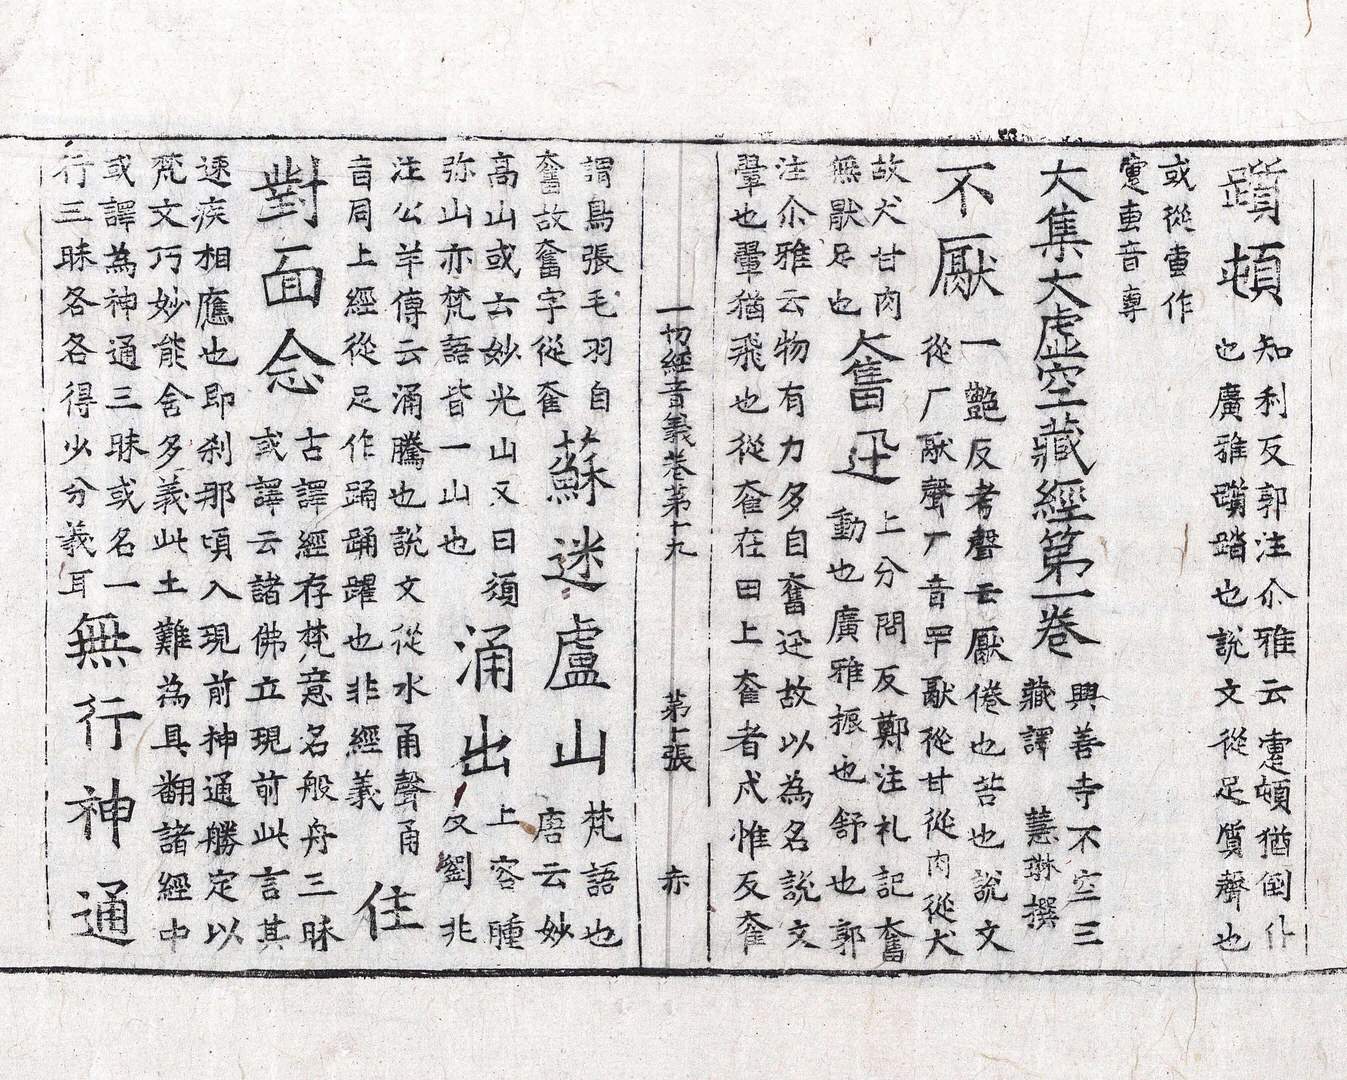 躓頓
知利反郭注尒雅云疐頓猶倒仆
也廣雅躓踏也說文從足質聲也
或從叀作
疐叀音專
大集大虛空藏經第一卷
興善寺不空三
藏譯 慧琳撰
不厭
一艷反考聲云厭倦也苦也說文
從厂猒聲厂音罕猒從甘從肉從犬
故犬甘肉
無猒足也
奮迅
上分問反鄭注礼記奮
動也廣雅振也舒也郭
注尒雅云物有力多自奮迅故以為名說文
翬也翬猶飛也從奞在田上奞者戌惟反奞
一切經音義卷第十九 第十張 赤
謂鳥張毛羽自
奮故奮字從奞
蘇迷盧山
梵語也
唐云妙
高山或云妙光山又曰須
弥山亦梵語皆一山也
涌出
上容腫
反劉兆
注公羊傳云涌騰也說文從水甬聲甬
音同上經從足作踊踊躍也非經義
住
對面念
古譯經存梵意名般舟三昧
或譯云諸佛立現前此言其
速疾相應也即剎那頃入現前神通勝定以
梵文巧妙能含多義此土難為具翻諸經中
或譯為神通三昧或名一
行三昧各各得少分義耳
無行神通